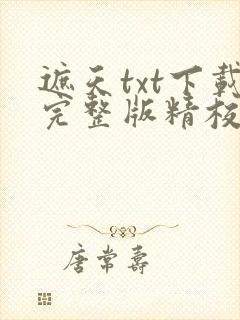 遮天txt下载
完整版精校
唐常寿